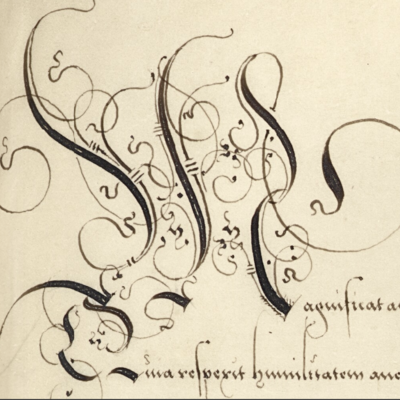 Magnificat a
Quia respexit humilitatem anc